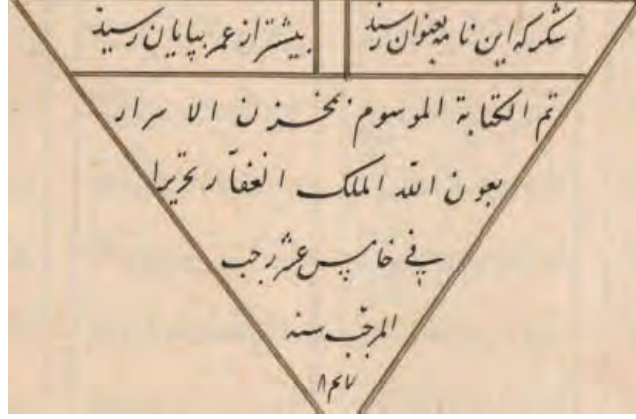 شکر که این نامه بعنوان رسید
بیشتر از عمر بپایان رسید
تم الکتابة الموسوم بمخزن الاسرار
بعون الله الملک الغفار تحریرا
فی خامس عشر رجب
المرجب سنه